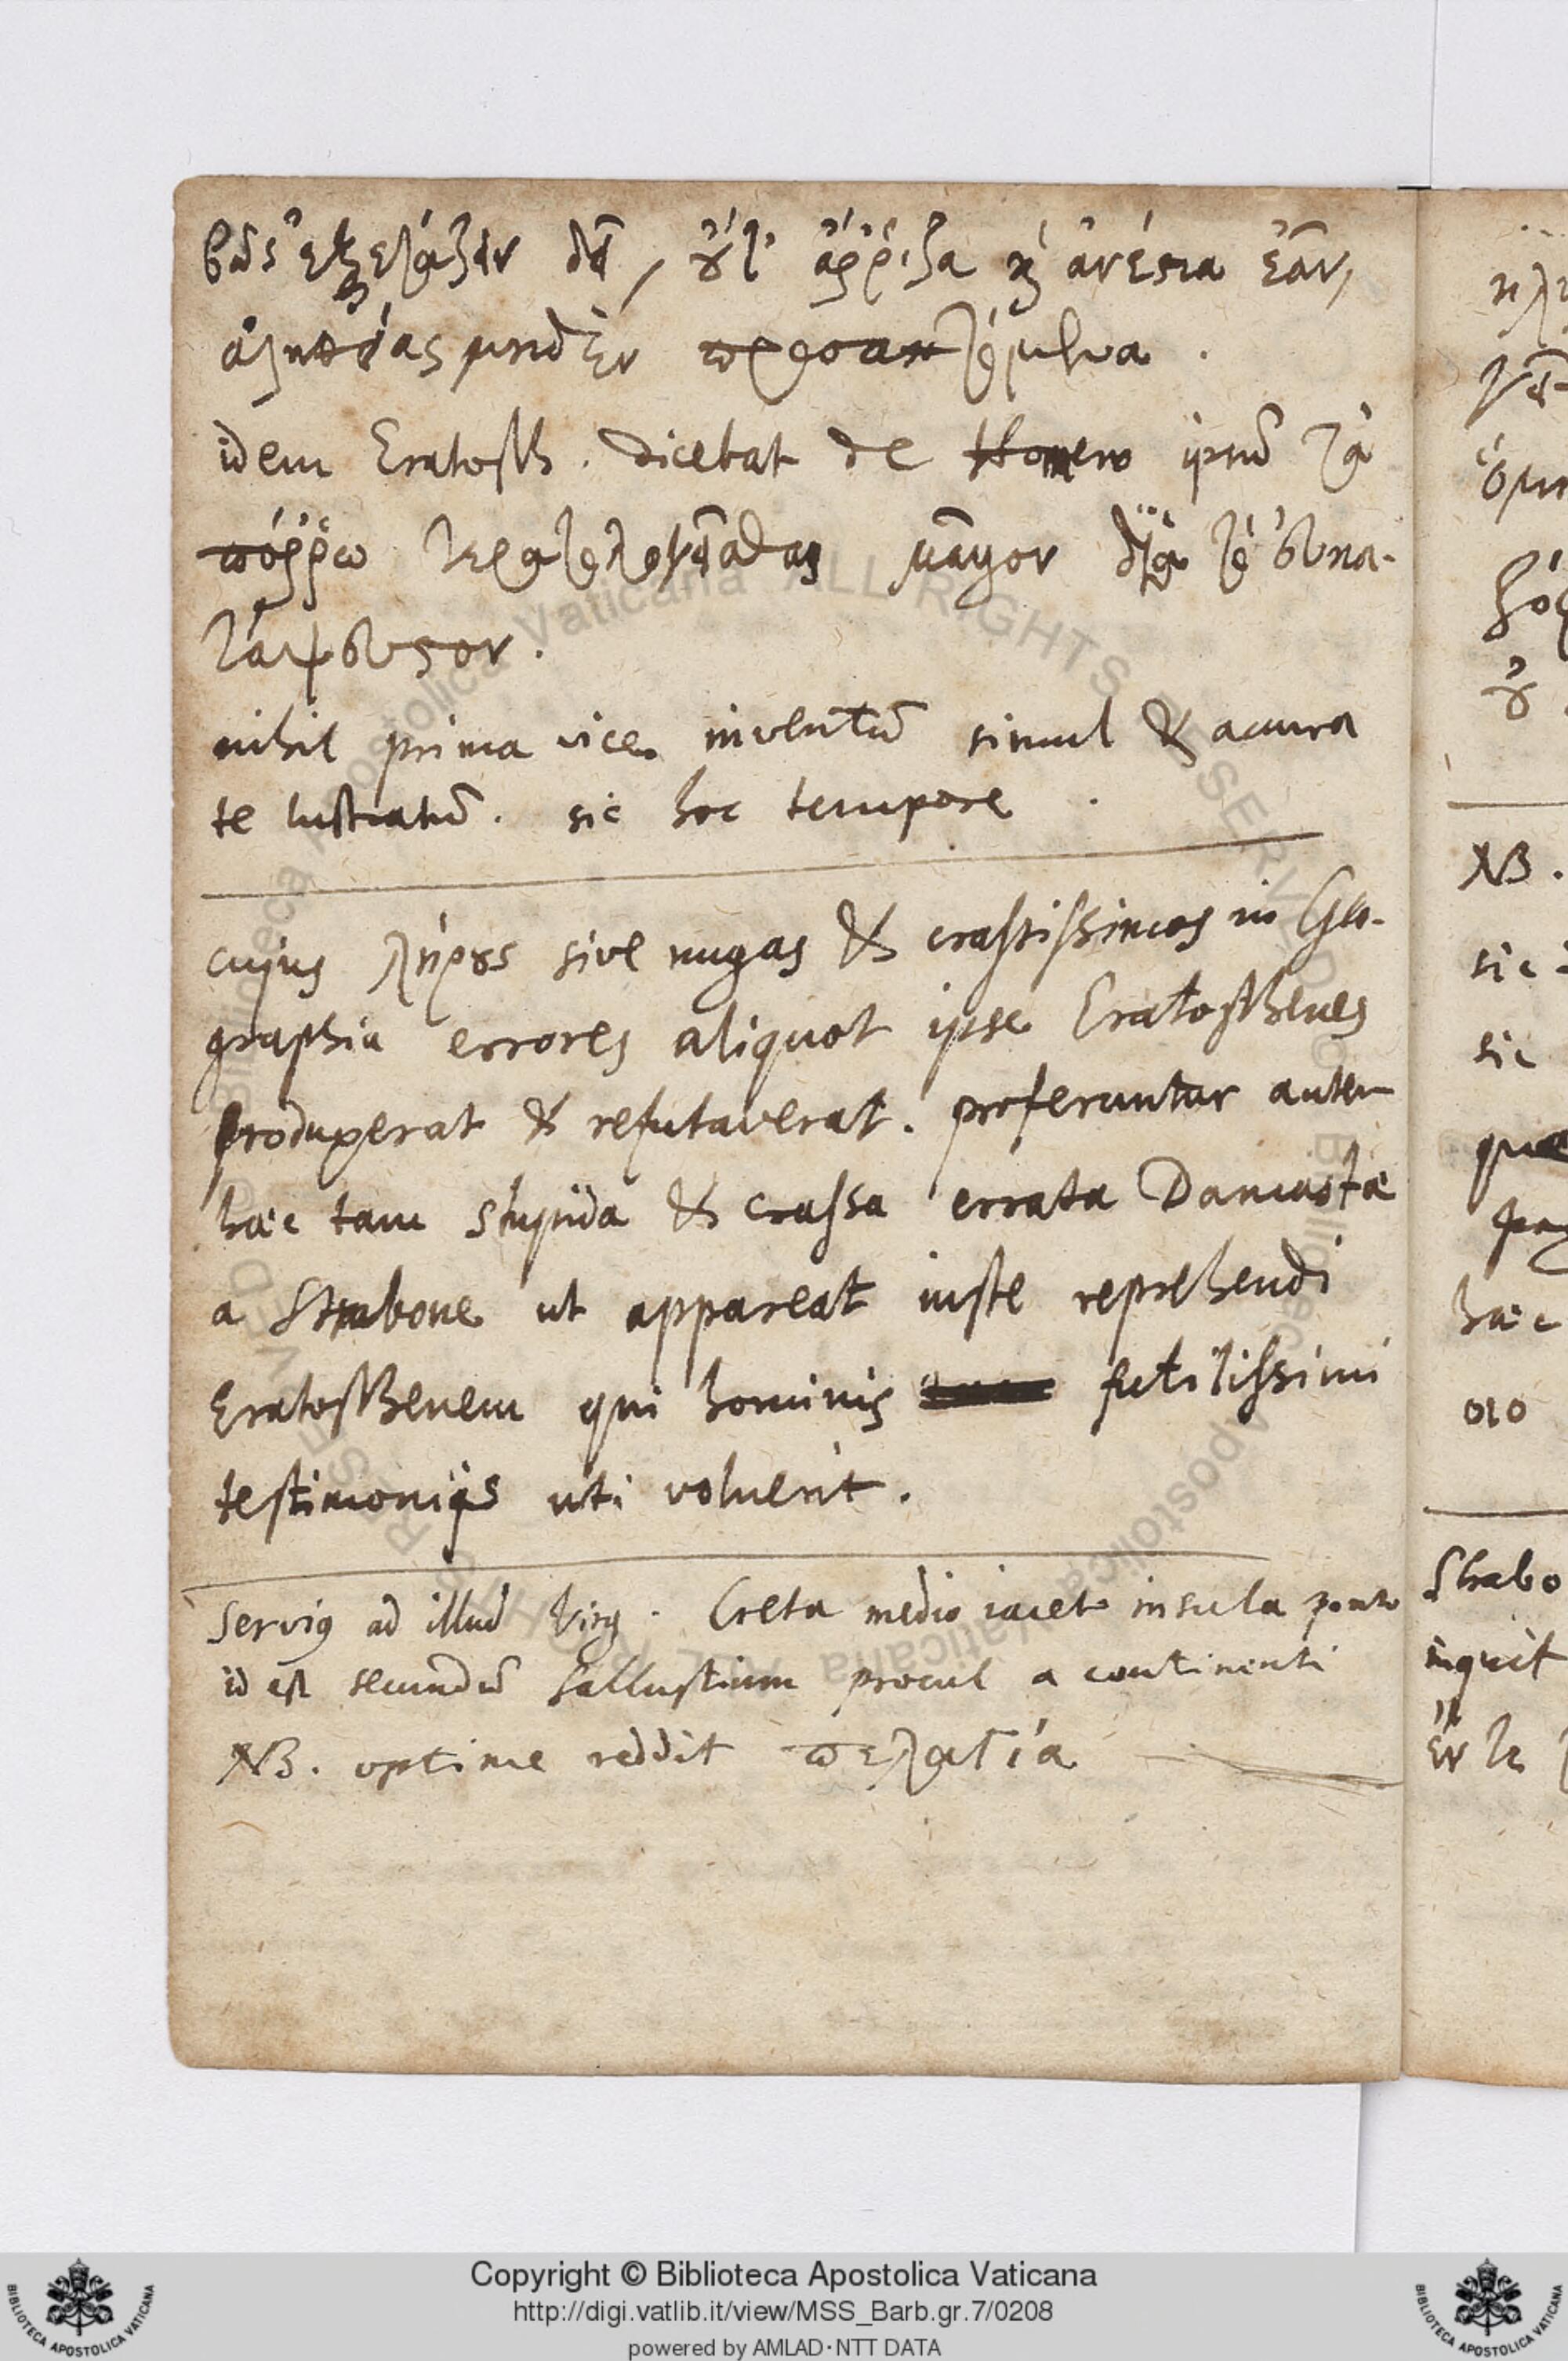 βῶς ἐξετάζειν δεῖ, οὔτ' ἄῤῥιζα καὶ ἀνέστια ἐᾶν,
ἀληθείας μηδὲν προσαπτόμενα.
idem Eratosth. dicebat de Homero ipsū τὰ
πόῤῥω τερατολογεῖσθαι μᾶλλον διὰ τὸ εὐκα-
τάψευστον.
nihil prima vice inventū simul & accura
te lustratū. sic hoc tempore
cujus λήρους sive nugas & crassissimos in Geo-
graphia errores aliquot ipse Eratosthenes
produxerat & refutaverat. proferuntur autem
hæc tam stupida & crassa errata Damastæ
a Strabone ut appareat iuste reprehendi
Eratosthenem qui hominis futilissimi
testimonijs uti voluerit.
Servius ad illud Virg. Creta medio iacet insula ponto
id est secundū Sallustium procul a continenti
NB. optime reddit πελαγία
NB.
sic
sic
hæc
Strabo
inquit
Copyright © Biblioteca Apostolica Vaticana
http://digi.vatlib.it/view/MSS_Barb.gr.7/0208
powered by AMLAD·NTT DATA